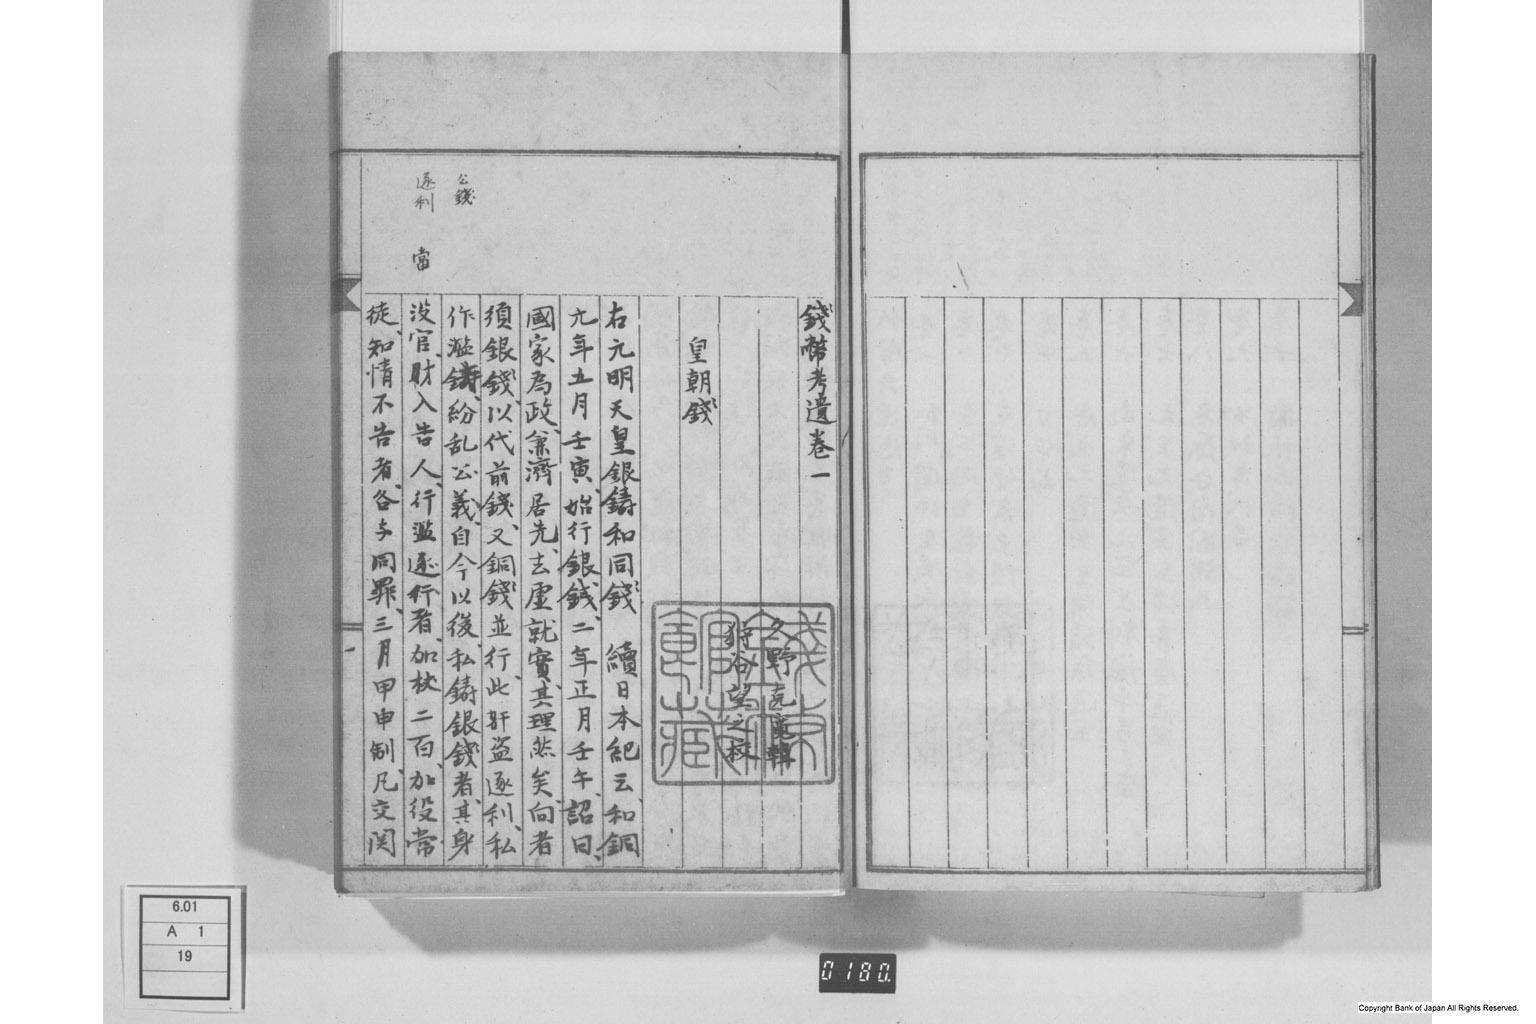 錢幣考遺卷一
狩谷望之校
皇朝錢
右元明天皇銀鑄和同錢 續日本紀云、和銅
元年五月壬寅、始行銀錢、二年正月壬午、詔曰、
國家為政、兼濟居先、去虛就實、其理然矣、向者
須銀錢、以代前錢、又銅錢並行、比姧盜逐利、私
作濫鑄、紛乱公義、自今以後、私鑄銀錢者、其身
沒官、財入告人、行濫逐行者、加杖二百、加役常
徒、知情不告者、各与同罪、三月甲申制、凡交関
公錢
逐利
當
一
6.01
A 1
19
0180.
Copyright Bank of Japan All Rights Reserved.